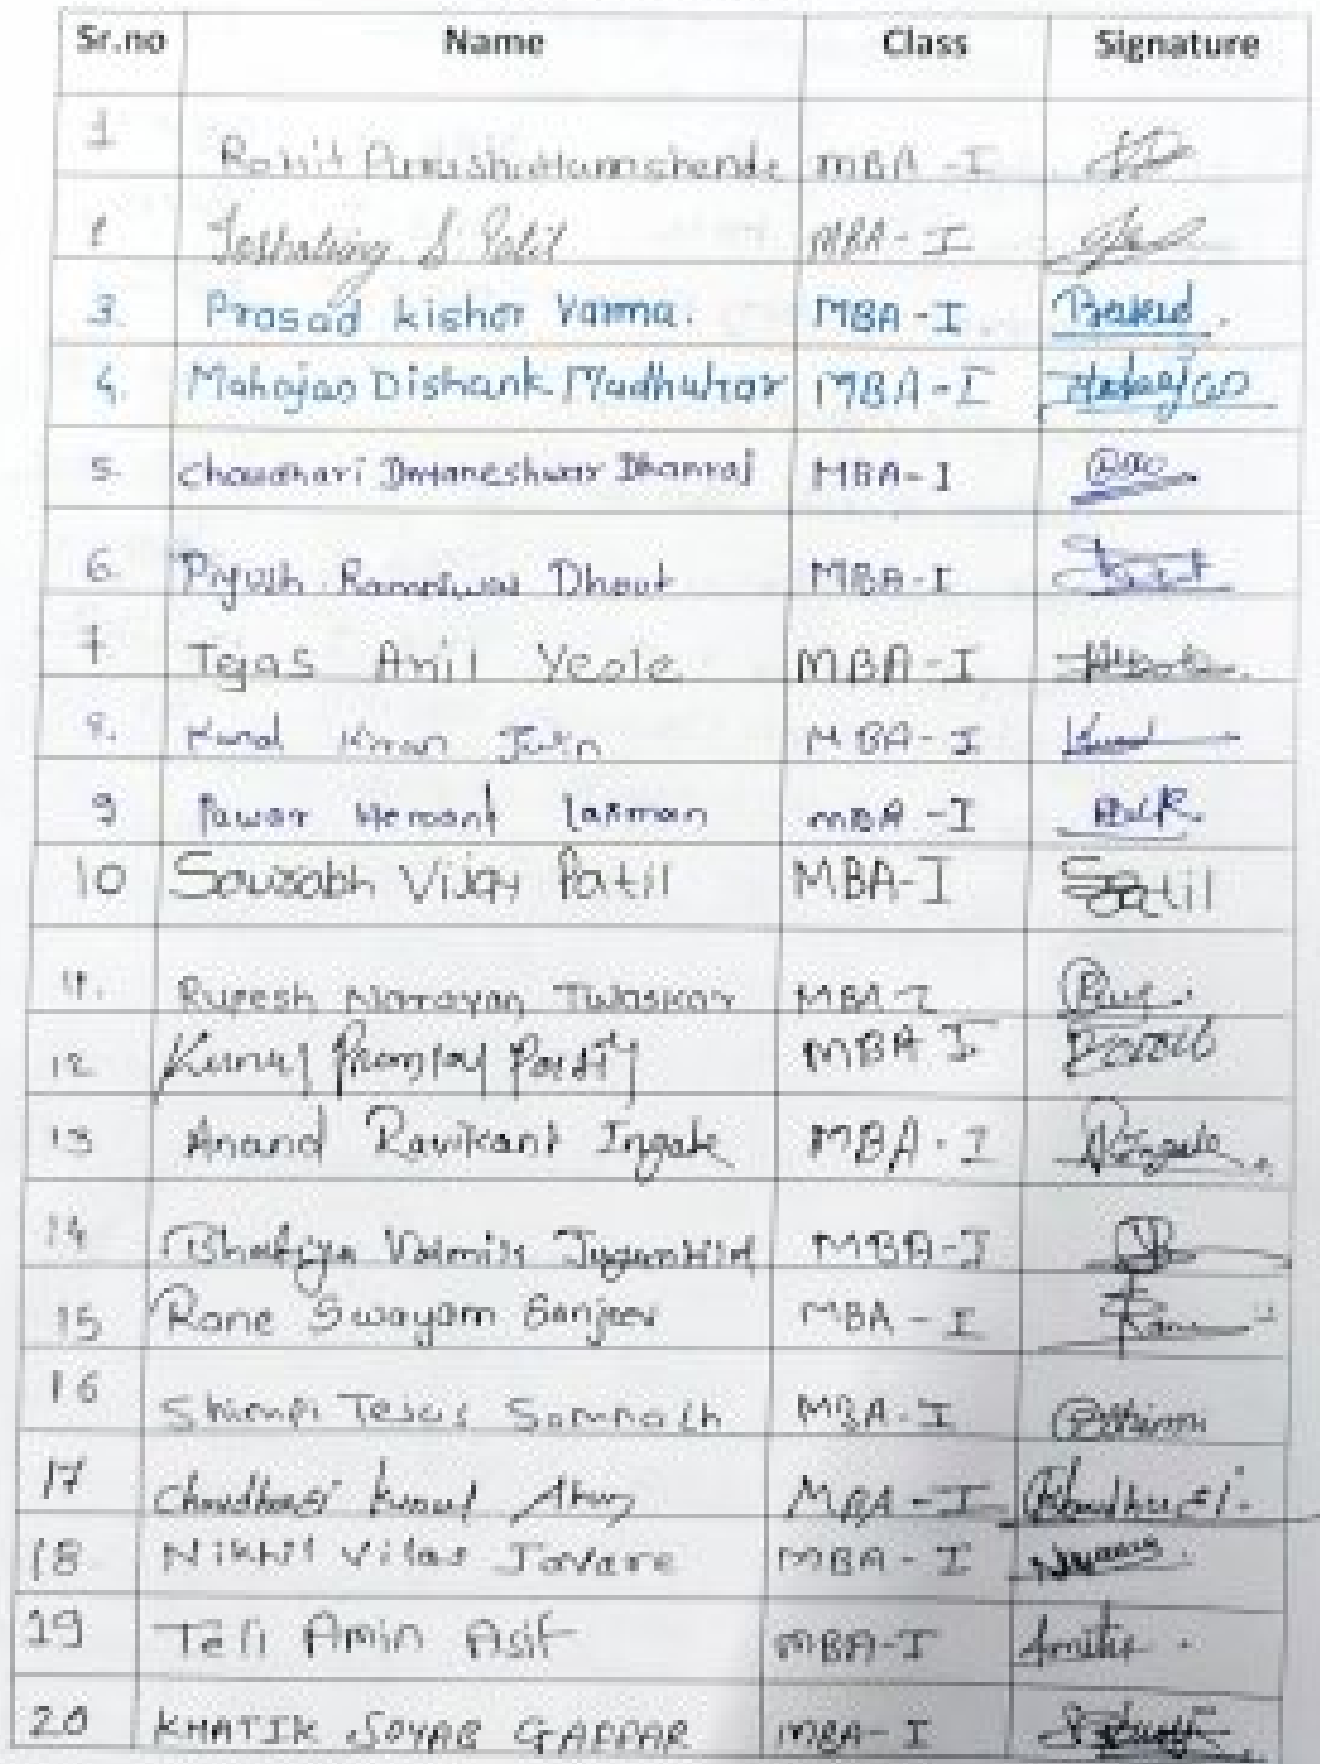 Sr.no Name Class Signature
1 Rohit Purushottam shende MBA - I
Patil MBA - I
3. Prasad kishor Varma. MBA - I.
4. Mahajan Dishank Madhukar MBA - I
5. Choudhari Dnyaneshwar Dhanraj MBA - I
6. Piyush Rameshwar Dhout MBA - I
7 Tejas Anil Yeole MBA - I
8. Kunal Kiran Jain MBA - I Kunal
9 Pawar Hemant Laxman MBA - I
10 Sourabh Vijay Patil MBA - I Patil
11. Rupesh Narayan MBA - I
12 MBA I
13 Anand Ravikant Ingale MBA - I
14 MBA - I
15 Rane Swayam Sanjeev MBA - I Rane
16 Shimpi Tejas Somnath MBA - I
17 Choudhari Kunal MBA - I Choudhari.
18 Nikhil Vilas Javare MBA - I
19 Teli Amin Asif MBA - I
20 KHATIK SOYAB GAFFAR MBA - I